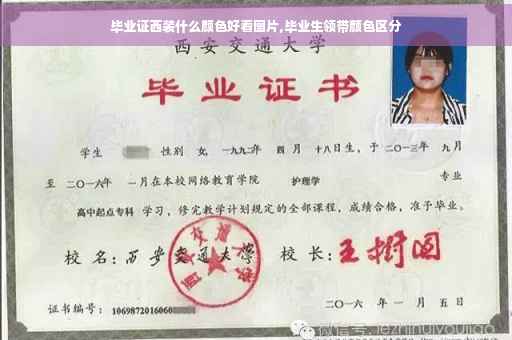 毕业证西装什么颜色好看图片,毕业生领带颜色区分
西安交通大学
毕业证书
学生 性别 女, 一九九二年 四 月 十八日生, 于 二〇一三年 九 月
至 二〇一六年 一 月在本校网络教育学院 护理学 专业
高中起点专科 学习, 修完教学计划规定的全部课程, 成绩合格, 准予毕业。
校 名: 西安交通大学 校 长: 王树国
证书编号: 1069872016060
二〇一六 年 一 月 五 日
微信号: jiezhinuiyoujiao